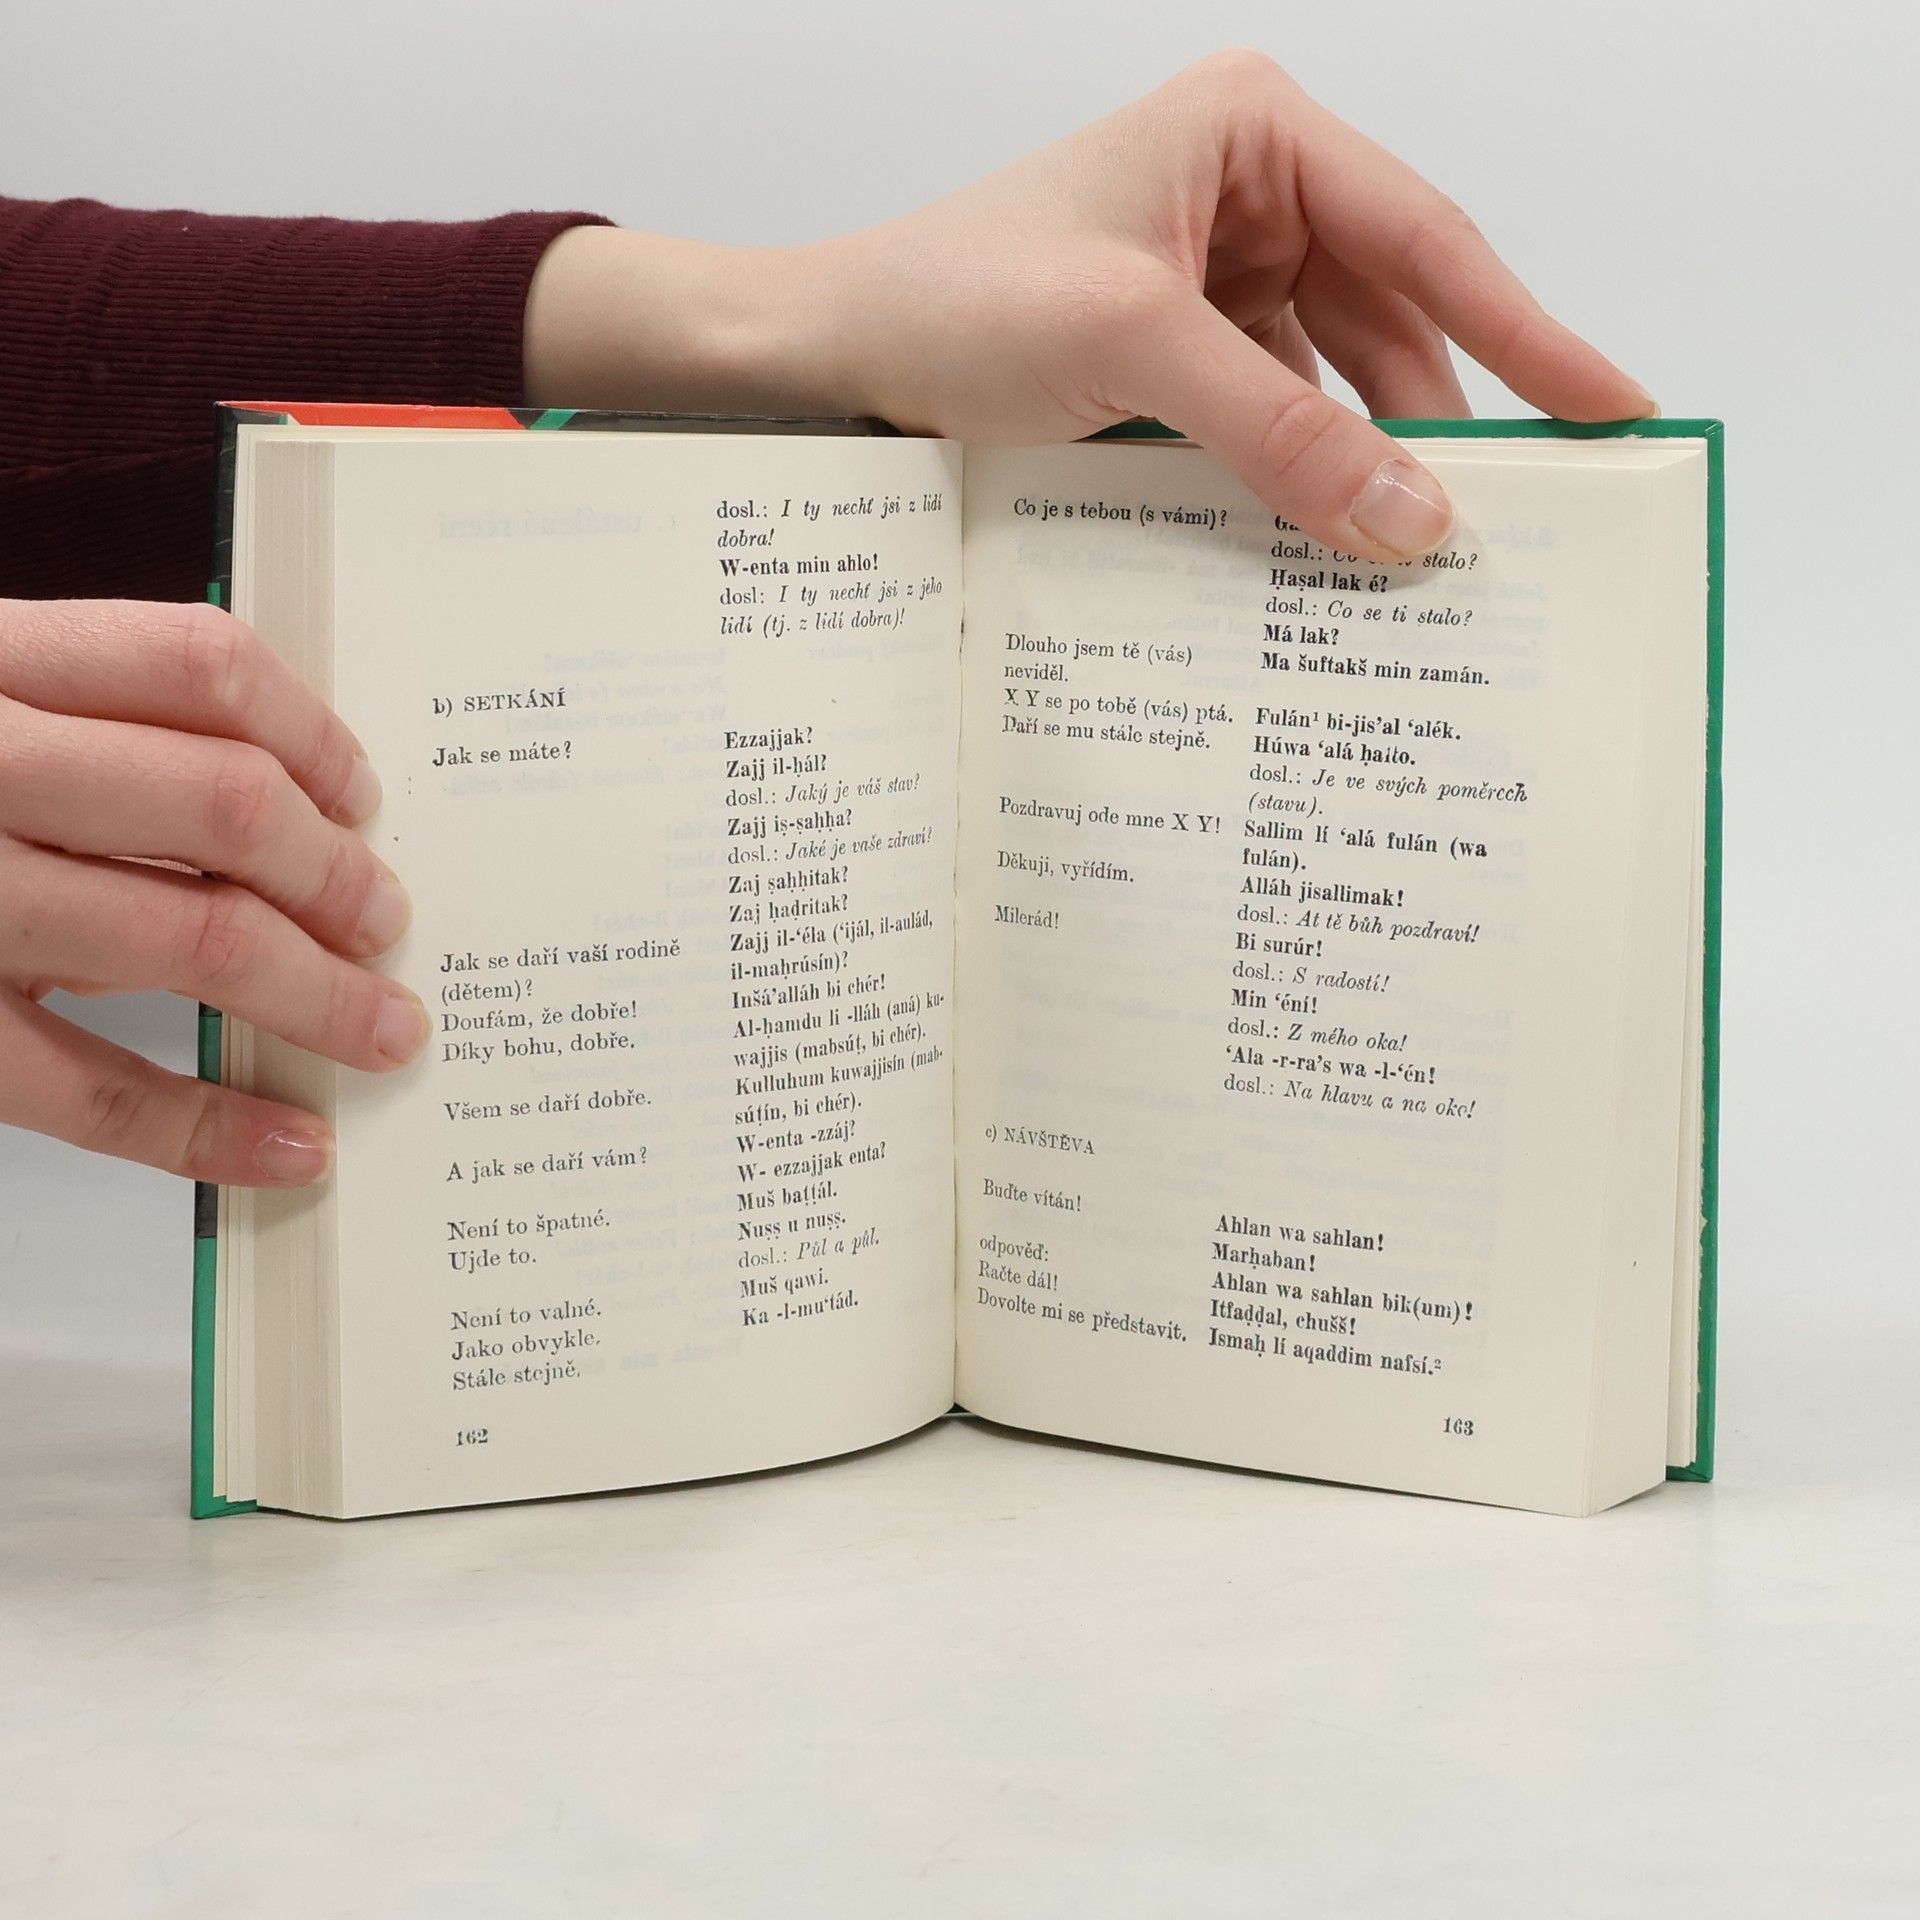 dosl.: I ty nechť jsi z lidí
dobra!
W-enta min ahlo!
dosl: I ty nechť jsi z jeho
lidí (tj. z lidí dobra)!
b) SETKÁNÍ
Jak se máte?
Ezzajjak?
Zajj il-ḥál?
dosl.: Jaký je váš stav?
Zajj iṣ-ṣaḥḥa?
dosl.: Jaké je vaše zdraví?
Zaj ṣaḥḥitak?
Zaj ḥaḍritak?
Jak se daří vaší rodině
(dětem)?
Zajj il-‘éla (‘ijál, il-aulád,
il-maḥrúsín)?
Doufám, že dobře!
Inšá’alláh bi chér!
Díky bohu, dobře.
Al-ḥamdu li -lláh (aná) ku-
wajjis (mabsúṭ, bi chér).
Všem se daří dobře.
Kulluhum kuwajjisín (mab-
súṭín, bi chér).
A jak se daří vám?
W-enta -zzáj?
W- ezzajjak enta?
Není to špatné.
Muš baṭṭál.
Ujde to.
Nuṣṣ u nuṣṣ.
dosl.: Půl a půl.
Není to valné.
Muš qawi.
Jako obvykle.
Ka -l-mu‘tád.
Stále stejně.
162
Co je s tebou (s vámi)?
dosl.: stalo?
Ḥaṣal lak é?
dosl.: Co se ti stalo?
Má lak?
Dlouho jsem tě (vás)
neviděl.
Ma šuftakš min zamán.
X Y se po tobě (vás) ptá.
Fulán¹ bi-jis’al ‘alék.
Daří se mu stále stejně.
Húwa ‘alá ḥalto.
dosl.: Je ve svých poměrech
(stavu).
Pozdravuj ode mne X Y!
Sallim lí ‘alá fulán (wa
fulán).
Děkuji, vyřídím.
Alláh jisallimak!
dosl.: Ať tě bůh pozdraví!
Milerád!
Bi surúr!
dosl.: S radostí!
Min ‘éní!
dosl.: Z mého oka!
‘Ala -r-ra’s wa -l-‘én!
dosl.: Na hlavu a na oko!
c) NÁVŠTĚVA
Buďte vítán!
Ahlan wa sahlan!
Marḥaban!
odpověď:
Ahlan wa sahlan bik(um)!
Račte dál!
Itfaḍḍal, chušš!
Dovolte mi se představit.
Ismaḥ lí aqaddim nafsí.²
163